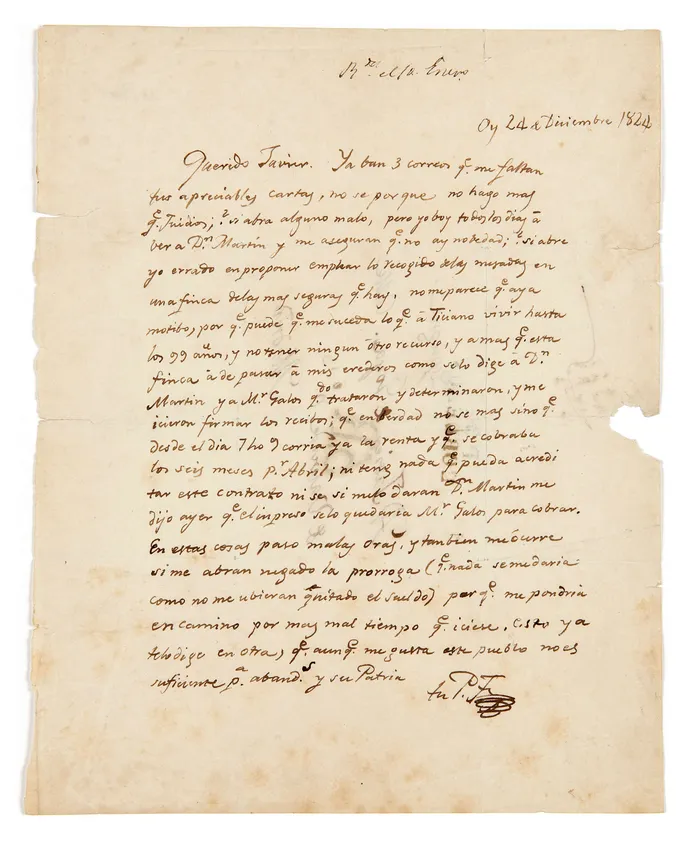 R.da el 10. Enero
Oy 24 de Diciembre 1824
Querido Javier. Ya ban 3 correos q.e me faltan
tus apreciables cartas, no se por que no hago mas
q.e Juicios; si abra alguno malo, pero yo boy todos los dias á
ver a D.n Martin y me aseguran q.e no ay nobedad; si abre
yo errado en proponer emplear lo recogido de las mesadas en
una finca de las mas seguras q.e hay, no me parece q.e aya
motibo, por q.e puede q.e me suceda lo q.e á Ticiano vivir hasta
los 99 años, y no tener ningun otro recurso, y a mas q.e esta
finca á de pasar á mis erederos como se lo dige á D.n
Martin y a M.r Galos q.do trataron y determinaron, y me
icieron firmar los recibos; q.e en berdad no se mas sino q.e
desde el dia 7 ho 9 corria ya la renta y q.e se cobraba
los seis meses p.r Abril; ni teng nada q.e pueda acredi
tar este contrato ni se, si me lo daran D.n Martin me
dijo ayer q.e el inpreso se lo quedaria M.r Galos para cobrar.
En estas cosas paso malas oras, y tanbien me ócurre
si me abran negado la prorroga (q.e nada se me daria
como no me ubieran quitado el sueldo) por q.e me pondria
en camino por mas mal tiempo q.e iciese. Esto ya
te lo dige en otra, q.e aunq.e me gusta este pueblo no es
suficiente p.a aband.s y su Patria
tu P. F